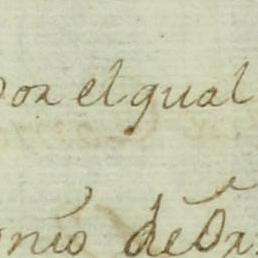 por el qual
onio de Or